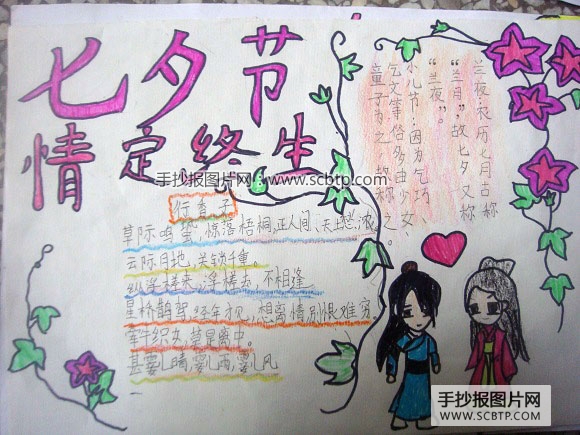 七夕节
情定终生
手抄报图片网:www.scbtp.com
兰夜:农历七月古称
“兰月”,故七夕又称
“兰夜”。
小儿节:因为乞巧、
乞文等俗多由少女、
童子为之,故称之。
行香子
草际鸣蛩,惊落梧桐,正人间、天上愁浓。
云阶月地,关锁千重。
纵浮槎来,浮槎去,不相逢
星桥鹊驾,经年才见,想离情别恨难穷。
牵牛织女,莫是离中。
甚霎儿晴,霎儿雨,霎儿风
手抄报图片网
WWW.SCBTP.COM